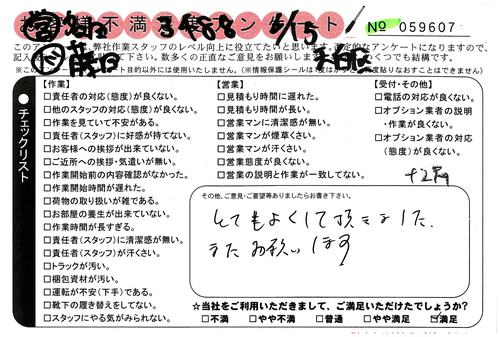 お客様不満足アンケート
3488 2/15
No 059607
このアンケートは、弊社作業スタッフのレベル向上に役立てたいと思います。否定的なアンケートになりますので、
【作業】
□責任者の対応(態度)が良くない。
□他のスタッフの対応(態度)が良くない。
□作業を見ていて不安がある。
□責任者(スタッフ)に好感が持てない。
□お客様への挨拶が出来ていない。
□ご近所への挨拶・気遣いが無い。
□作業開始前の内容確認がなかった。
□作業開始時間が遅れた。
□荷物の取り扱いが雑である。
□お部屋の養生が出来ていない。
□作業時間が長すぎる。
□責任者(スタッフ)に清潔感が無い。
□責任者(スタッフ)が汗くさい。
□トラックが汚い。
□梱包資材が汚い。
□運転が不安(下手)である。
□靴下の履き替えをしてない。
□スタッフにやる気がみられない。
【営業】
□見積もり時間に遅れた。
□見積もり時間が長い。
□営業マンに清潔感が無い。
□営業マンが煙草くさい。
□営業マンが汗くさい。
□営業態度が良くない。
□営業の説明と作業が一致してない。
【受付・その他】
□電話の対応が良くない。
□オプション業者の説明
・作業が良くない。
□オプション業者の対応
(態度)が良くない。
チェックリスト
その他、ご意見・ご要望等ありましたらお書き下さい。
とてもよくして頂きました。
またお願いします
☆当社をご利用いただきまして、ご満足いただけたでしょうか?
□不満 □やや不満 □普通 □やや満足 ☑満足